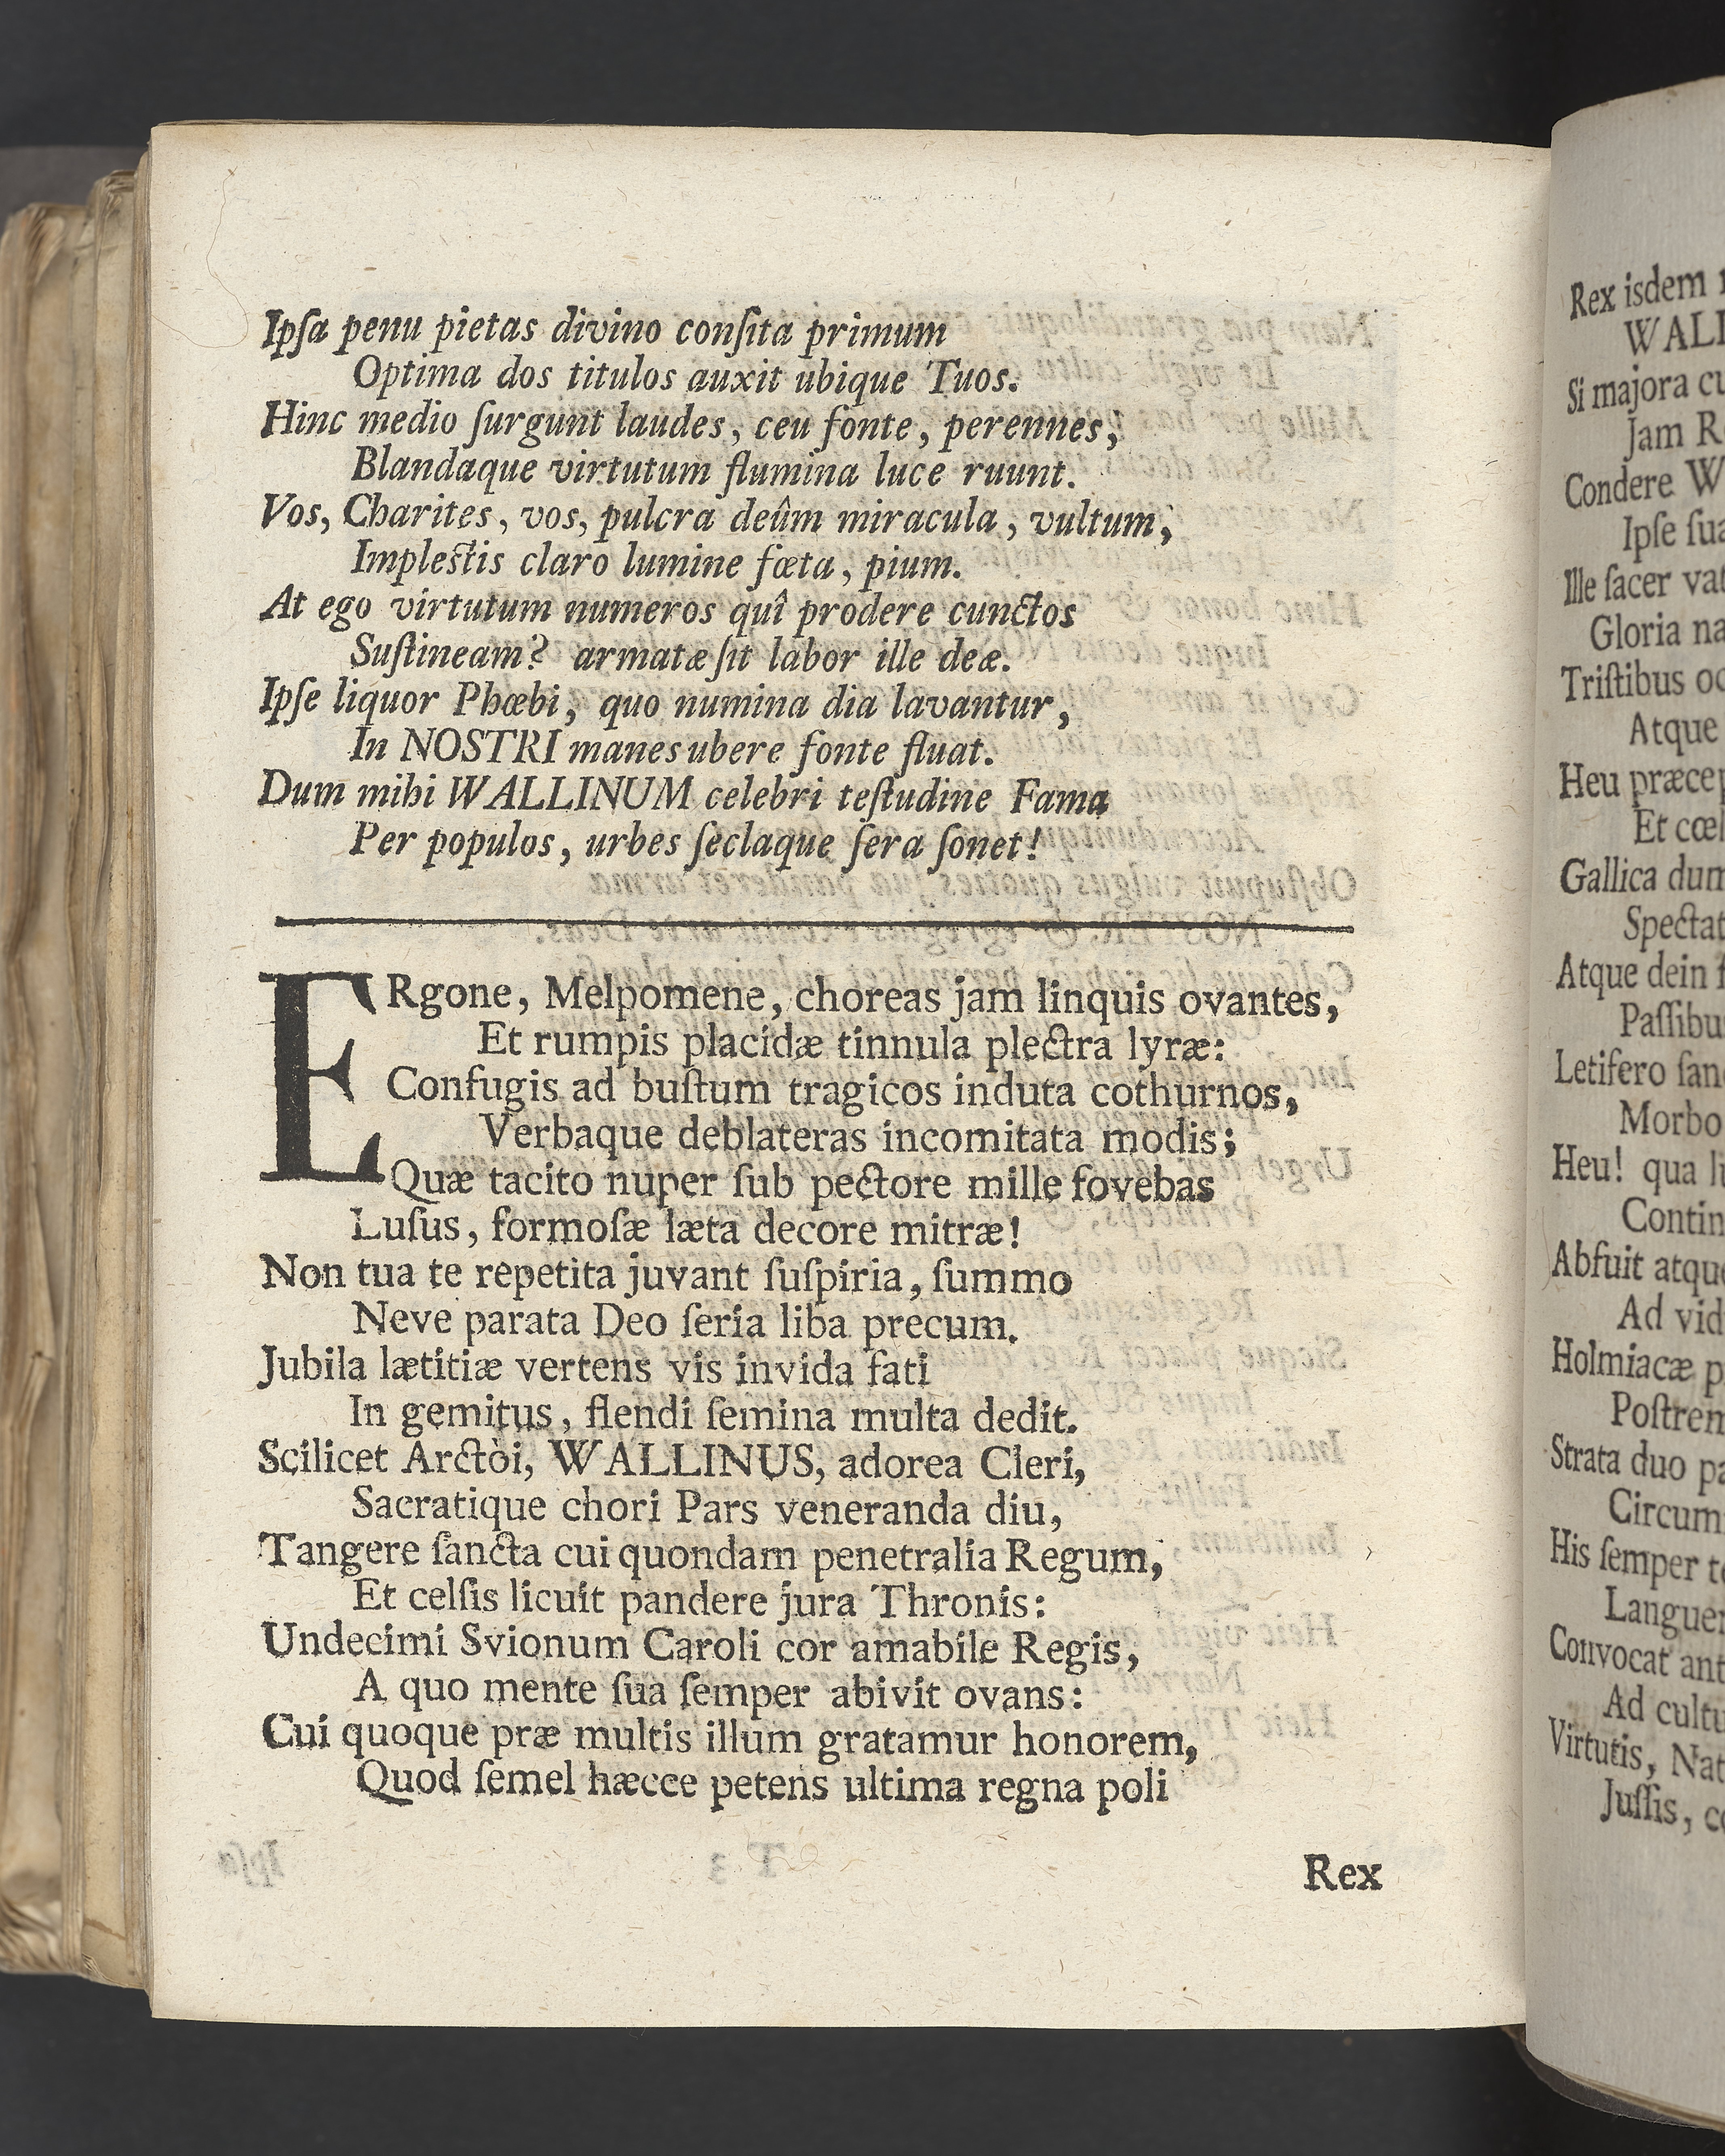 Ipſa penu pietas divino conſita primum
Optima dos titulos auxit ubique Tuos.
Hinc medio ſurgunt laudes, ceu fonte, perennes,
Blandaque virtutum flumina luce ruunt.
Vos, Charites, vos, pulcra deûm miracula, vultum,
Impleſtis claro lumine fœta, pium.
At ego virtutum numeros quî prodere cunctos
Suſtineam? armatæ ſit labor ille deæ.
Ipſe liquor Phœbi, quo numina dia lavantur,
In NOSTRI manes ubere fonte fluat.
Dum mihi WALLINUM celebri teſtudine Fama
Per populos, urbes ſeclaque ſera ſonet!
ERgone, Melpomene, choreas jam linquis ovantes,
Et rumpis placidæ tinnula plectra lyræ:
Confugis ad buſtum tragicos induta cothurnos,
Verbaque deblateras incomitata modis;
Quæ tacito nuper ſub pectore mille fovebas
Luſus, formoſæ læta decore mitræ!
Non tua te repetita juvant ſuſpiria, ſummo
Neve parata Deo ſeria liba precum.
Jubila lætitiæ vertens vis invida fati
In gemitus, flendi ſemina multa dedit.
Scilicet Arctòi, WALLINUS, adorea Cleri,
Sacratique chori Pars veneranda diu,
Tangere ſancta cui quondam penetralia Regum,
Et celſis licuit pandere jura Thronis:
Undecimi Svionum Caroli cor amabile Regis,
A quo mente ſua ſemper abivit ovans:
Cui quoque præ multis illum gratamur honorem,
Quod ſemel hæcce petens ultima regna poli
Rex
Rex isdem
WALL
Si majora
Jam
Condere
Ipſe
Ille ſacer
Gloria
Triſtibus
Atque
Heu
Et
Gallica
Spectat
Atque dein
Letifero
Morbo
Heu! qua
Abfuit
Ad
Holmiacæ
Strata duo
Circum
His ſemper
Convocat
Ad
Virtutis,
Juſſis,